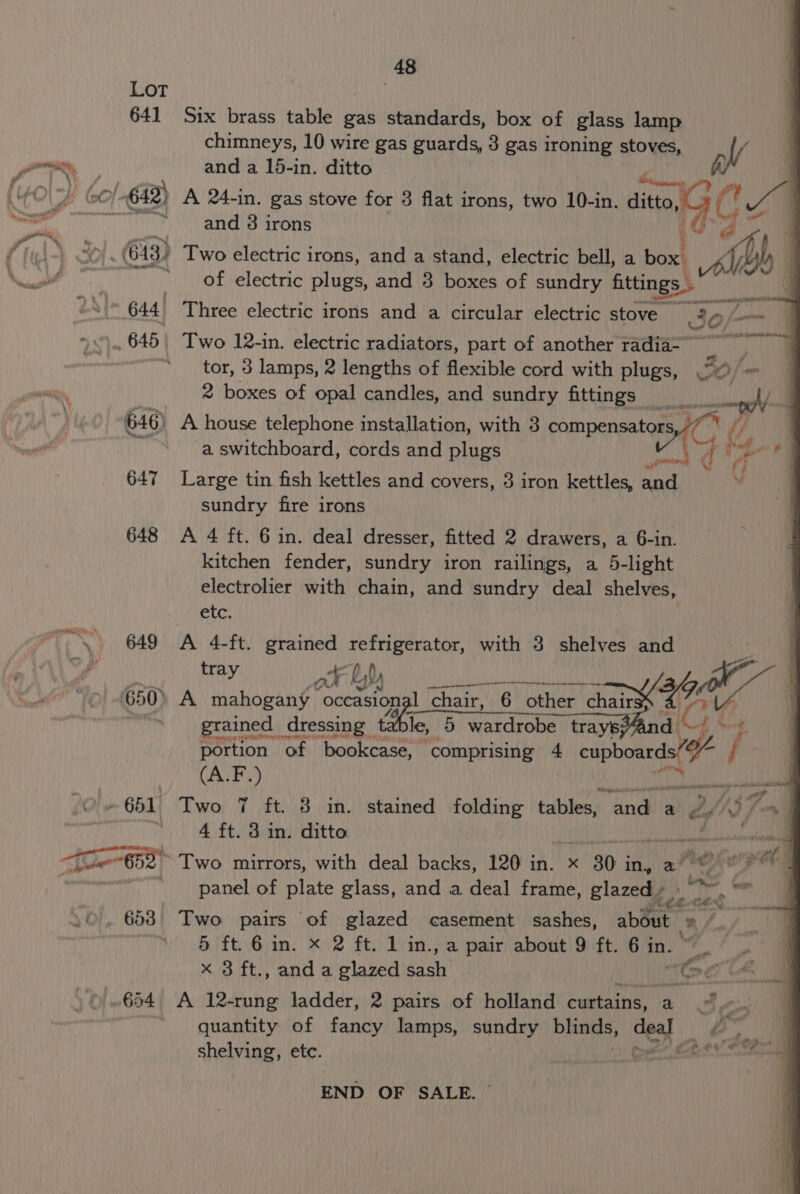 48
LOT
641 Six brass table gas standards, box of glass lamp
chimneys, 10 wire gas guards, 3 gas ironing stoves,
and a 15-in. ditto
642 A 24-in. gas stove for 3 flat irons, two 10-in. ditto,
and 3 irons
643 Two electric irons, and a stand, electric bell, a box
of electric plugs, and 3 boxes of sundry fittings
644 Three electric irons and a circular electric stove 30/-
645 Two 12-in. electric radiators, part of another radia-
tor, 3 lamps, 2 lengths of flexible cord with plugs,
2 boxes of opal candles, and sundry fittings
646 A house telephone installation, with 3 compensators,
a switchboard, cords and plugs
647 Large tin fish kettles and covers, 3 iron kettles, and
sundry fire irons
648 A 4 ft. 6 in. deal dresser, fitted 2 drawers, a 6-in.
kitchen fender, sundry iron railings, a 5-light
electrolier with chain, and sundry deal shelves,
etc.
649 A 4-ft. grained refrigerator, with 3 shelves and
tray
650 A mahogany occasional chair, 6 other chairs,
grained dressing table, 5 wardrobe trays, and
portion of bookcase, comprising 4 cupboards
(A.F.)
651 Two 7 ft. 3 in. stained folding tables, and a
4 ft. 3 in. ditto
652 Two mirrors, with deal backs, 120 in. × 30 in., a
panel of plate glass, and a deal frame, glazed
653 Two pairs of glazed casement sashes, about
5 ft. 6 in. × 2 ft. 1 in., a pair about 9 ft. 6 in.
× 3 ft., and a glazed sash
654 A 12-rung ladder, 2 pairs of holland curtains, a
quantity of fancy lamps, sundry blinds, deal
shelving, etc.
END OF SALE.